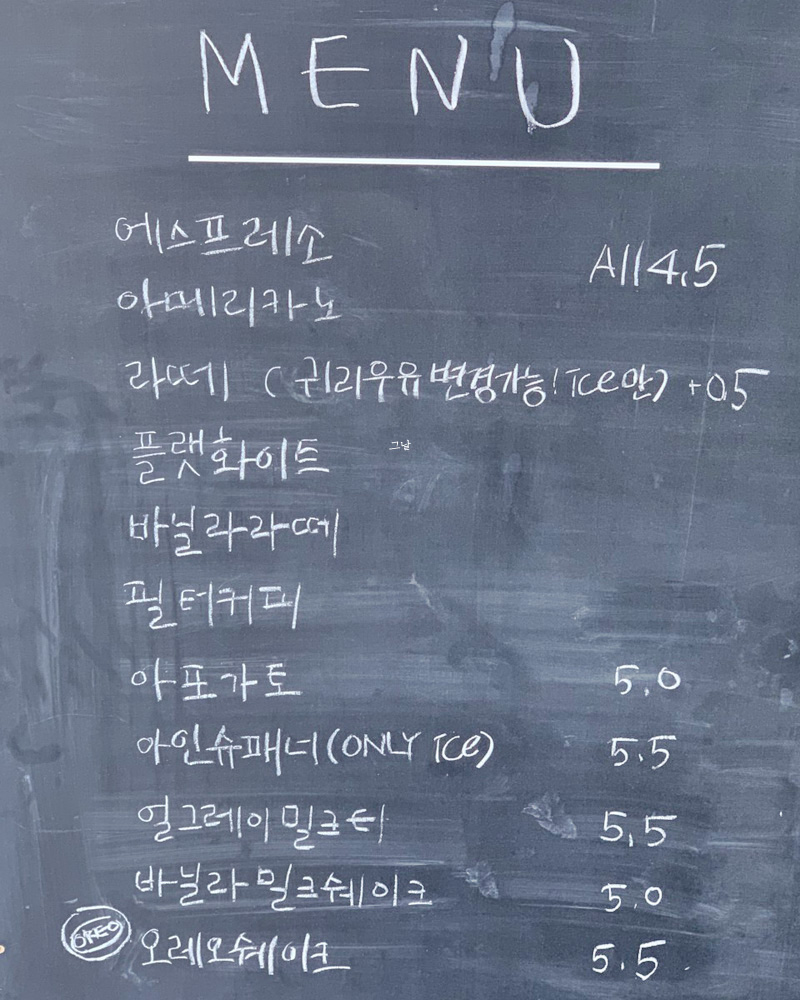 MENU
에스프레소
All 4.5
아메리카노
라떼 (귀리우유 변경가능! ICE만) +0.5
플랫화이트
그날
바닐라라떼
필터커피
아포가토 5.0
아인슈패너(ONLY ICE) 5.5
얼그레이 밀크티 5.5
바닐라 밀크쉐이크 5.0
OREO 오레오쉐이크 5.5